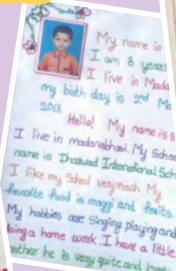 My name is
I am 8 years
I live in Mada
my birth day is 2nd Ma
2013.
Hello! My name is S
I live in madanabhavi. My Schoo
name is International Sch
I like my School very much. My
favorite food is maggi and fruits.
My hobbies are Singing playing and
doing a home work. I have a little
brother he is very quite and